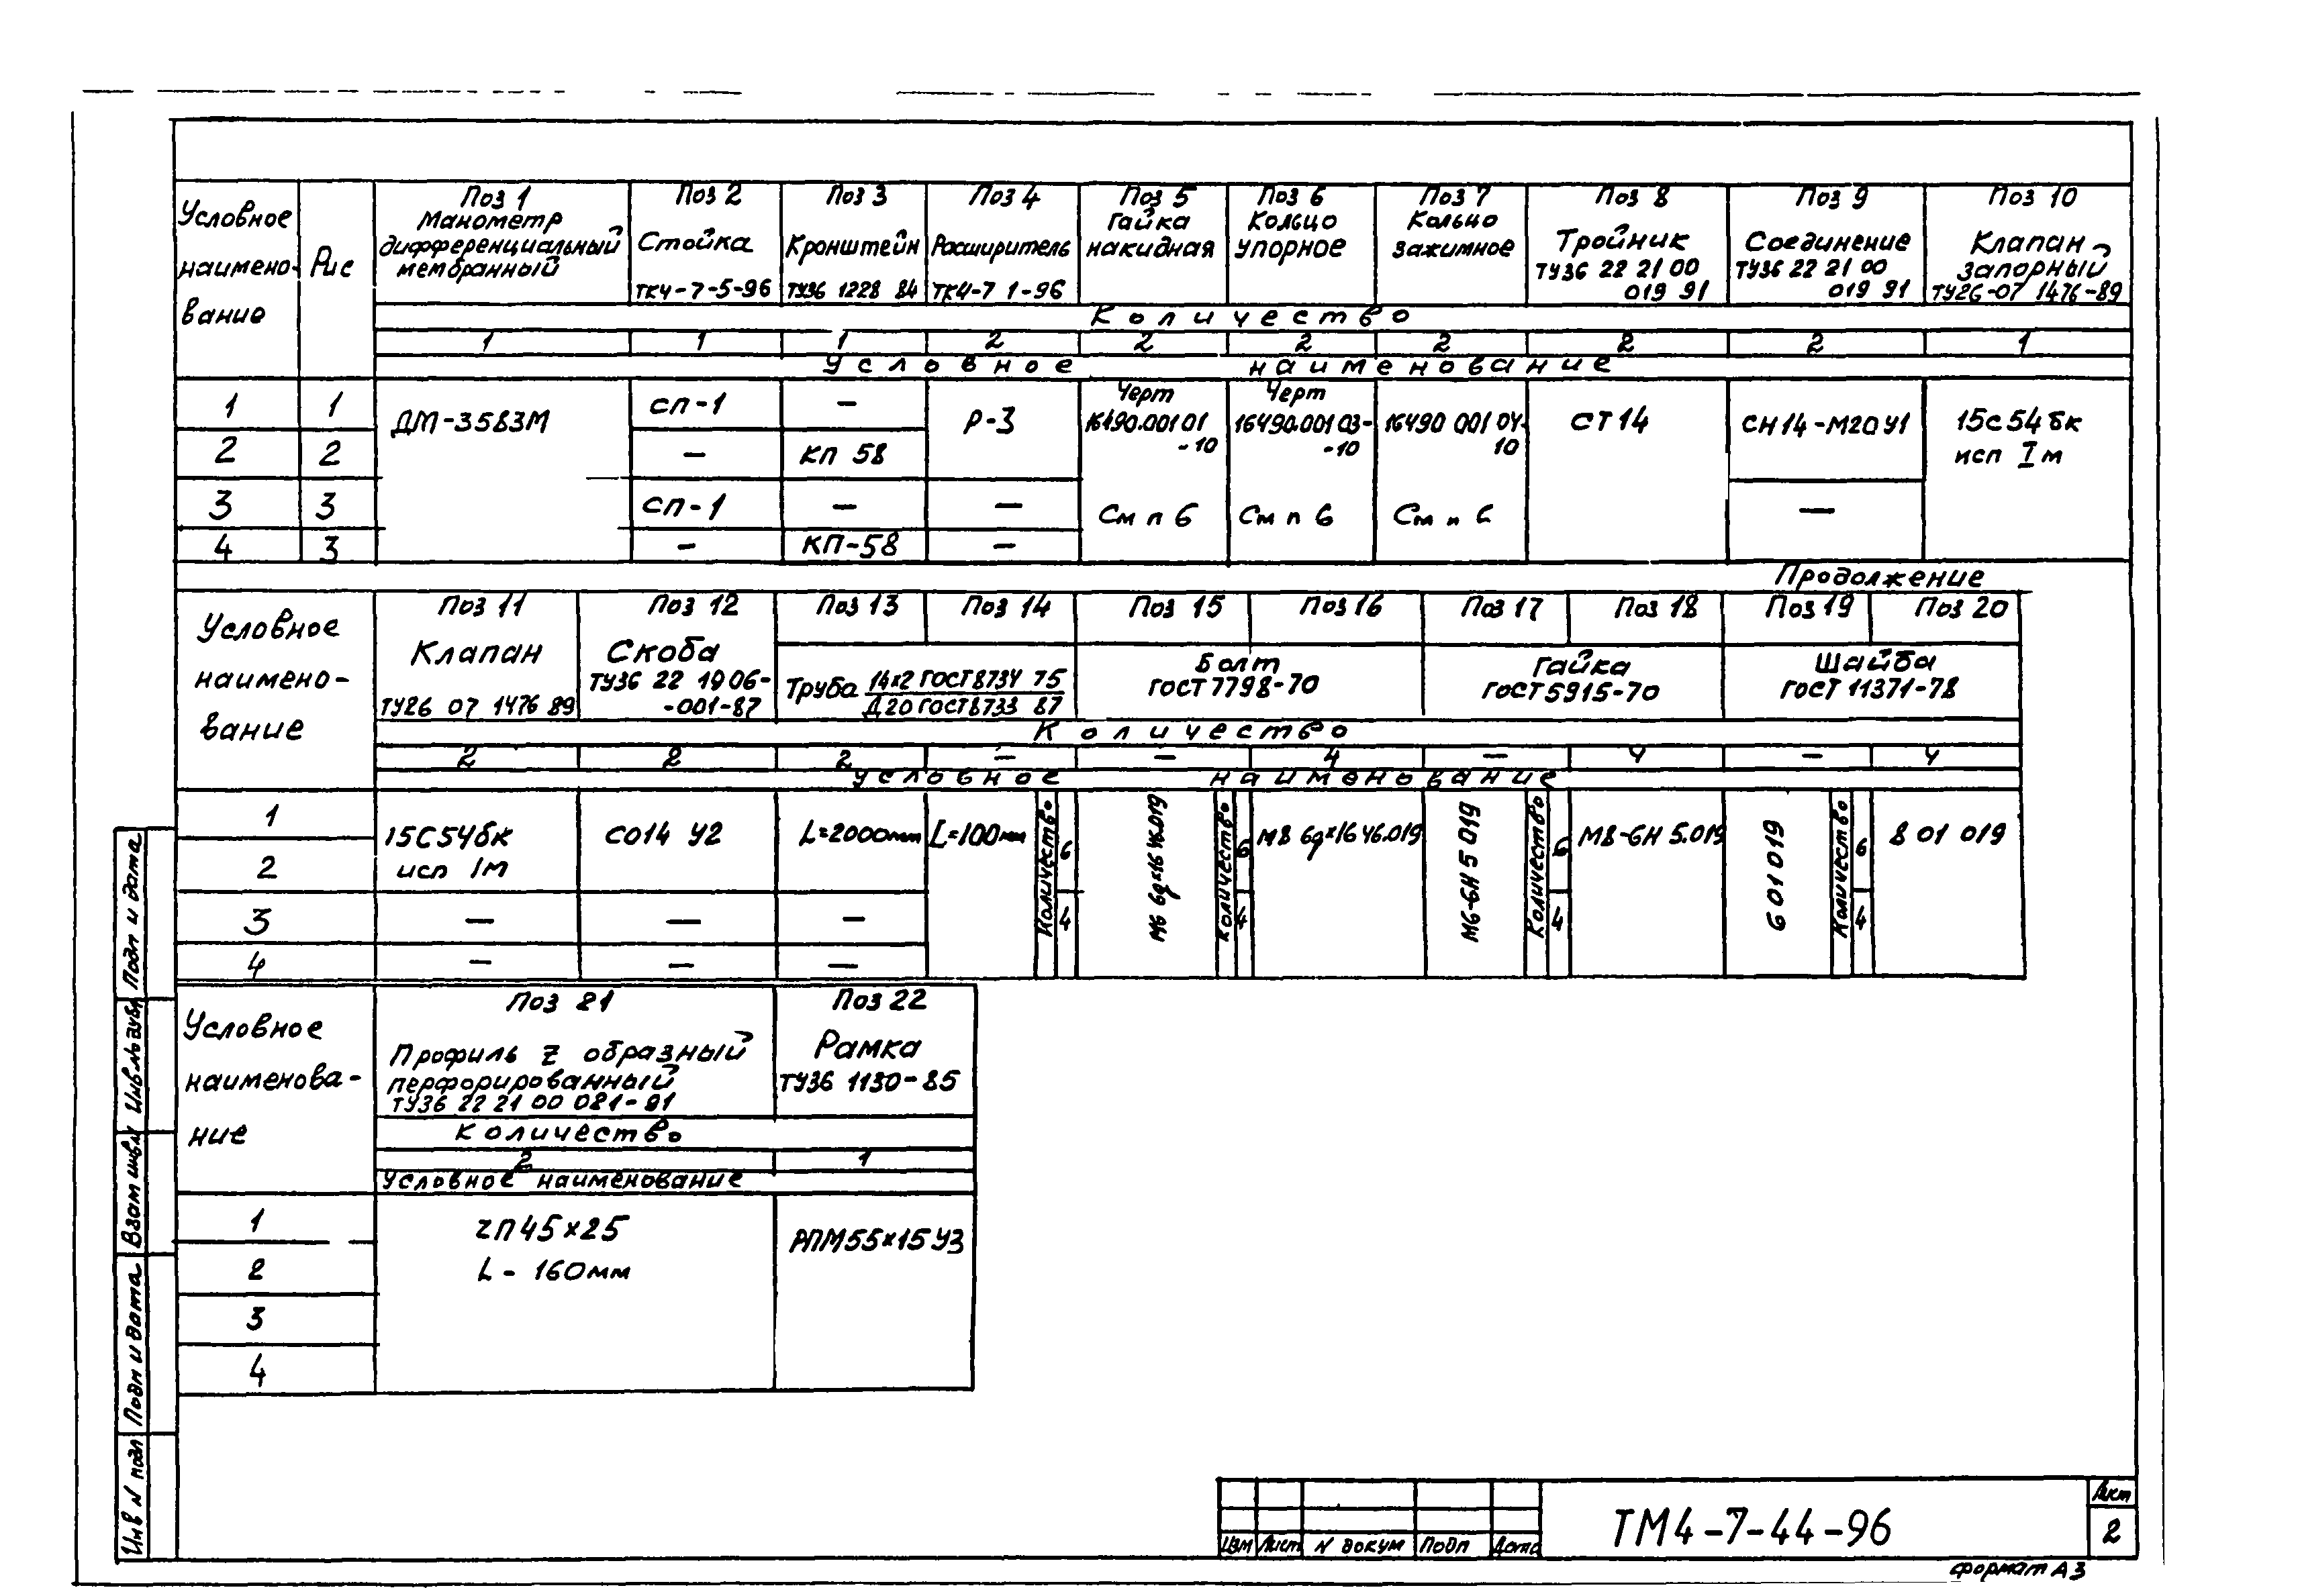 Условное наимено- вание
Рис
Поз 1 Манометр дифференциальный мембранный
Поз 2 Стойка ТК4-7-5-96
Поз 3 Кронштейн ТУ36 1228 84
Поз 4 Расширитель ТК4-7 1-96
Поз 5 Гайка накидная
Поз 6 Кольцо упорное
Поз 7 Кольцо зажимное
Поз 8 Тройник ТУ36 22 21 00 019 91
Поз 9 Соединение ТУ36 22 21 00 019 91
Поз 10 Клапан запорный ТУ26-07 1476-89
Количество
1 1 1 2 2 2 2 2 2 1
Условное наименование
1 1 ДМ-3583М СП-1 — Р-3 Черт 16490.001 01 -10 Черт 16490.001 03- -10 16490 001 04- 10 СТ14 СН14-М20У1 15с54бк исп I м
2 2 — КП 58
3 3 СП-1 — — См п 6 См п 6 См п 6 —
4 3 — КП-58 —
Продолжение
Условное наимено- вание
Поз 11 Клапан ТУ26 07 1476 89
Поз 12 Скоба ТУ36 22 19 06- -001-87
Поз 13 Поз 14
Труба 14х2 ГОСТ8734 75
Д20 ГОСТ8733 87
Поз 15 Поз 16
Болт
ГОСТ 7798-70
Поз 17 Поз 18
Гайка
ГОСТ5915-70
Поз 19 Поз 20
Шайба
ГОСТ 11371-78
Количество
2 2 2 — — 4 — 4 — 4
Условное наименование
1 15С54бк СО14 У2 L=2000мм L=100мм Количество 6 4 М6 6g×16 46.019 Количество 6 4 М8 6g×16 46.019 М6-6Н 5 019 Количество 6 4 М8-6Н 5.019 6 01 019 Количество 6 4 8 01 019
2 исп 1м
3 — — —
4 — — —
Условное наименова- ние
Поз 21 Профиль Z образный перфорированный ТУ36 22 21 00 081-91
Поз 22 Рамка ТУ36 1130-85
Количество
2 1
Условное наименование
1 ZП45×25 РПМ55×15У3
2 L - 160мм
3
4
Подп и дата
Инв № дубл
Взам инв №
Подп и дата
Инв N подл
Изм Лист N докум Подп Дата
ТМ4-7-44-96
Лист
2
Формат А3